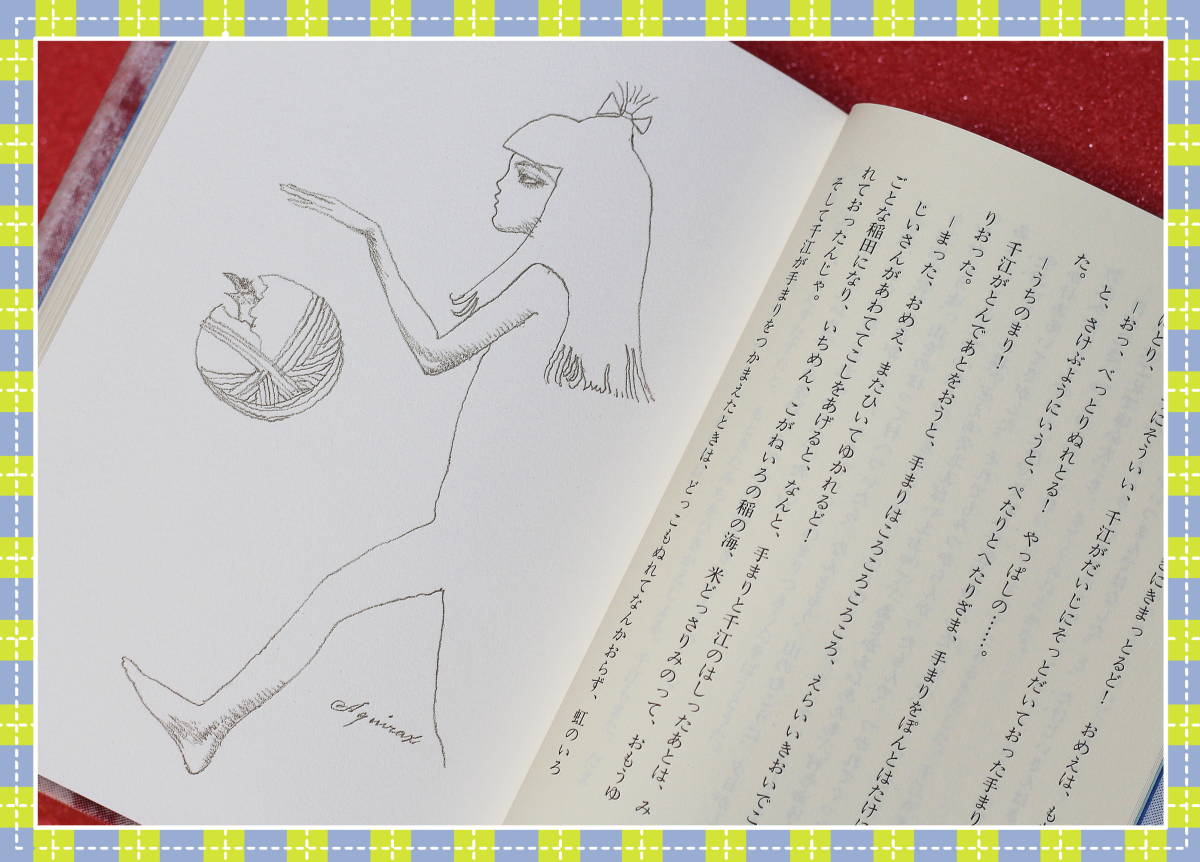 Aquirax
―おっ、べっとりぬれとる！　やっぱしの……。
と、さけぶようにいうと、ぺたりとへたりざま、手まりをぽんとはたけに
た。
―うちのまり！
千江がとんであとをおうと、手まりはころころころころ、えらいいきおいでこ
りおった。
―まった、おめえ、またひいてゆかれるど！
じいさんがあわててこしをあげると、なんと、手まりと千江のはしったあとは、み
ごとな稲田になり、いちめん、こがねいろの稲の海、米どっさりみのって、おもうゆ
れておったんじゃ。
そして千江が手まりをつかまえたときは、どっこもぬれてなんかおらず、虹のいろ